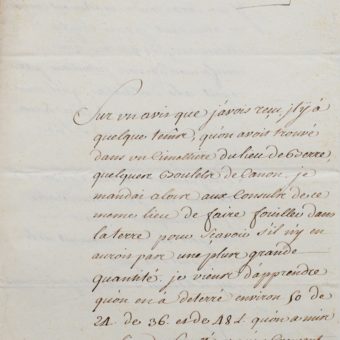 Sur un avis que j'avois reçu, il y à
quelque temps, qu'on avoit trouvé
dans un Cimetiere du lieu de
quelques Boulets de Canon. je
mandai alors aux Consuls de ce
meme lieu de faire fouiller dans
la terre pour sçavoir s'il n'y en
auroit pas une plus grande
quantité. je viens d'apprendre
qu'on en à deterré environ 50 de
24. de 36. et de 48 £ qu'on a mis